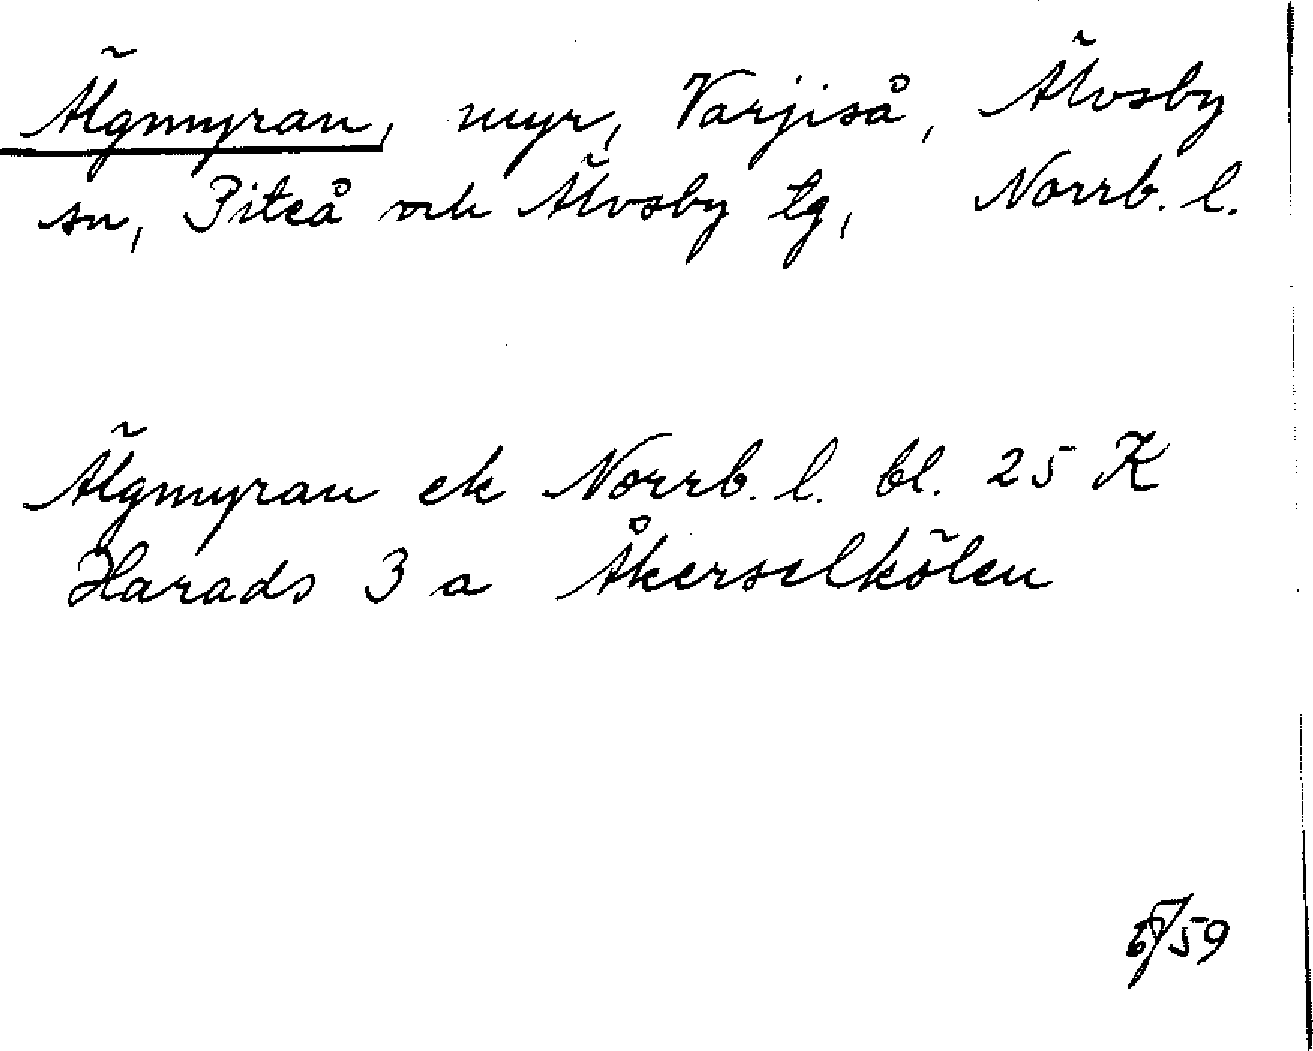 Älgmyran, myr, Varjiså, Älvsby
sn, Piteå och Älvsby tg, Norrb. l.
Älgmyran ek Norrb. l. bl. 25 K
Harads 3 a Åkerselkölen
59